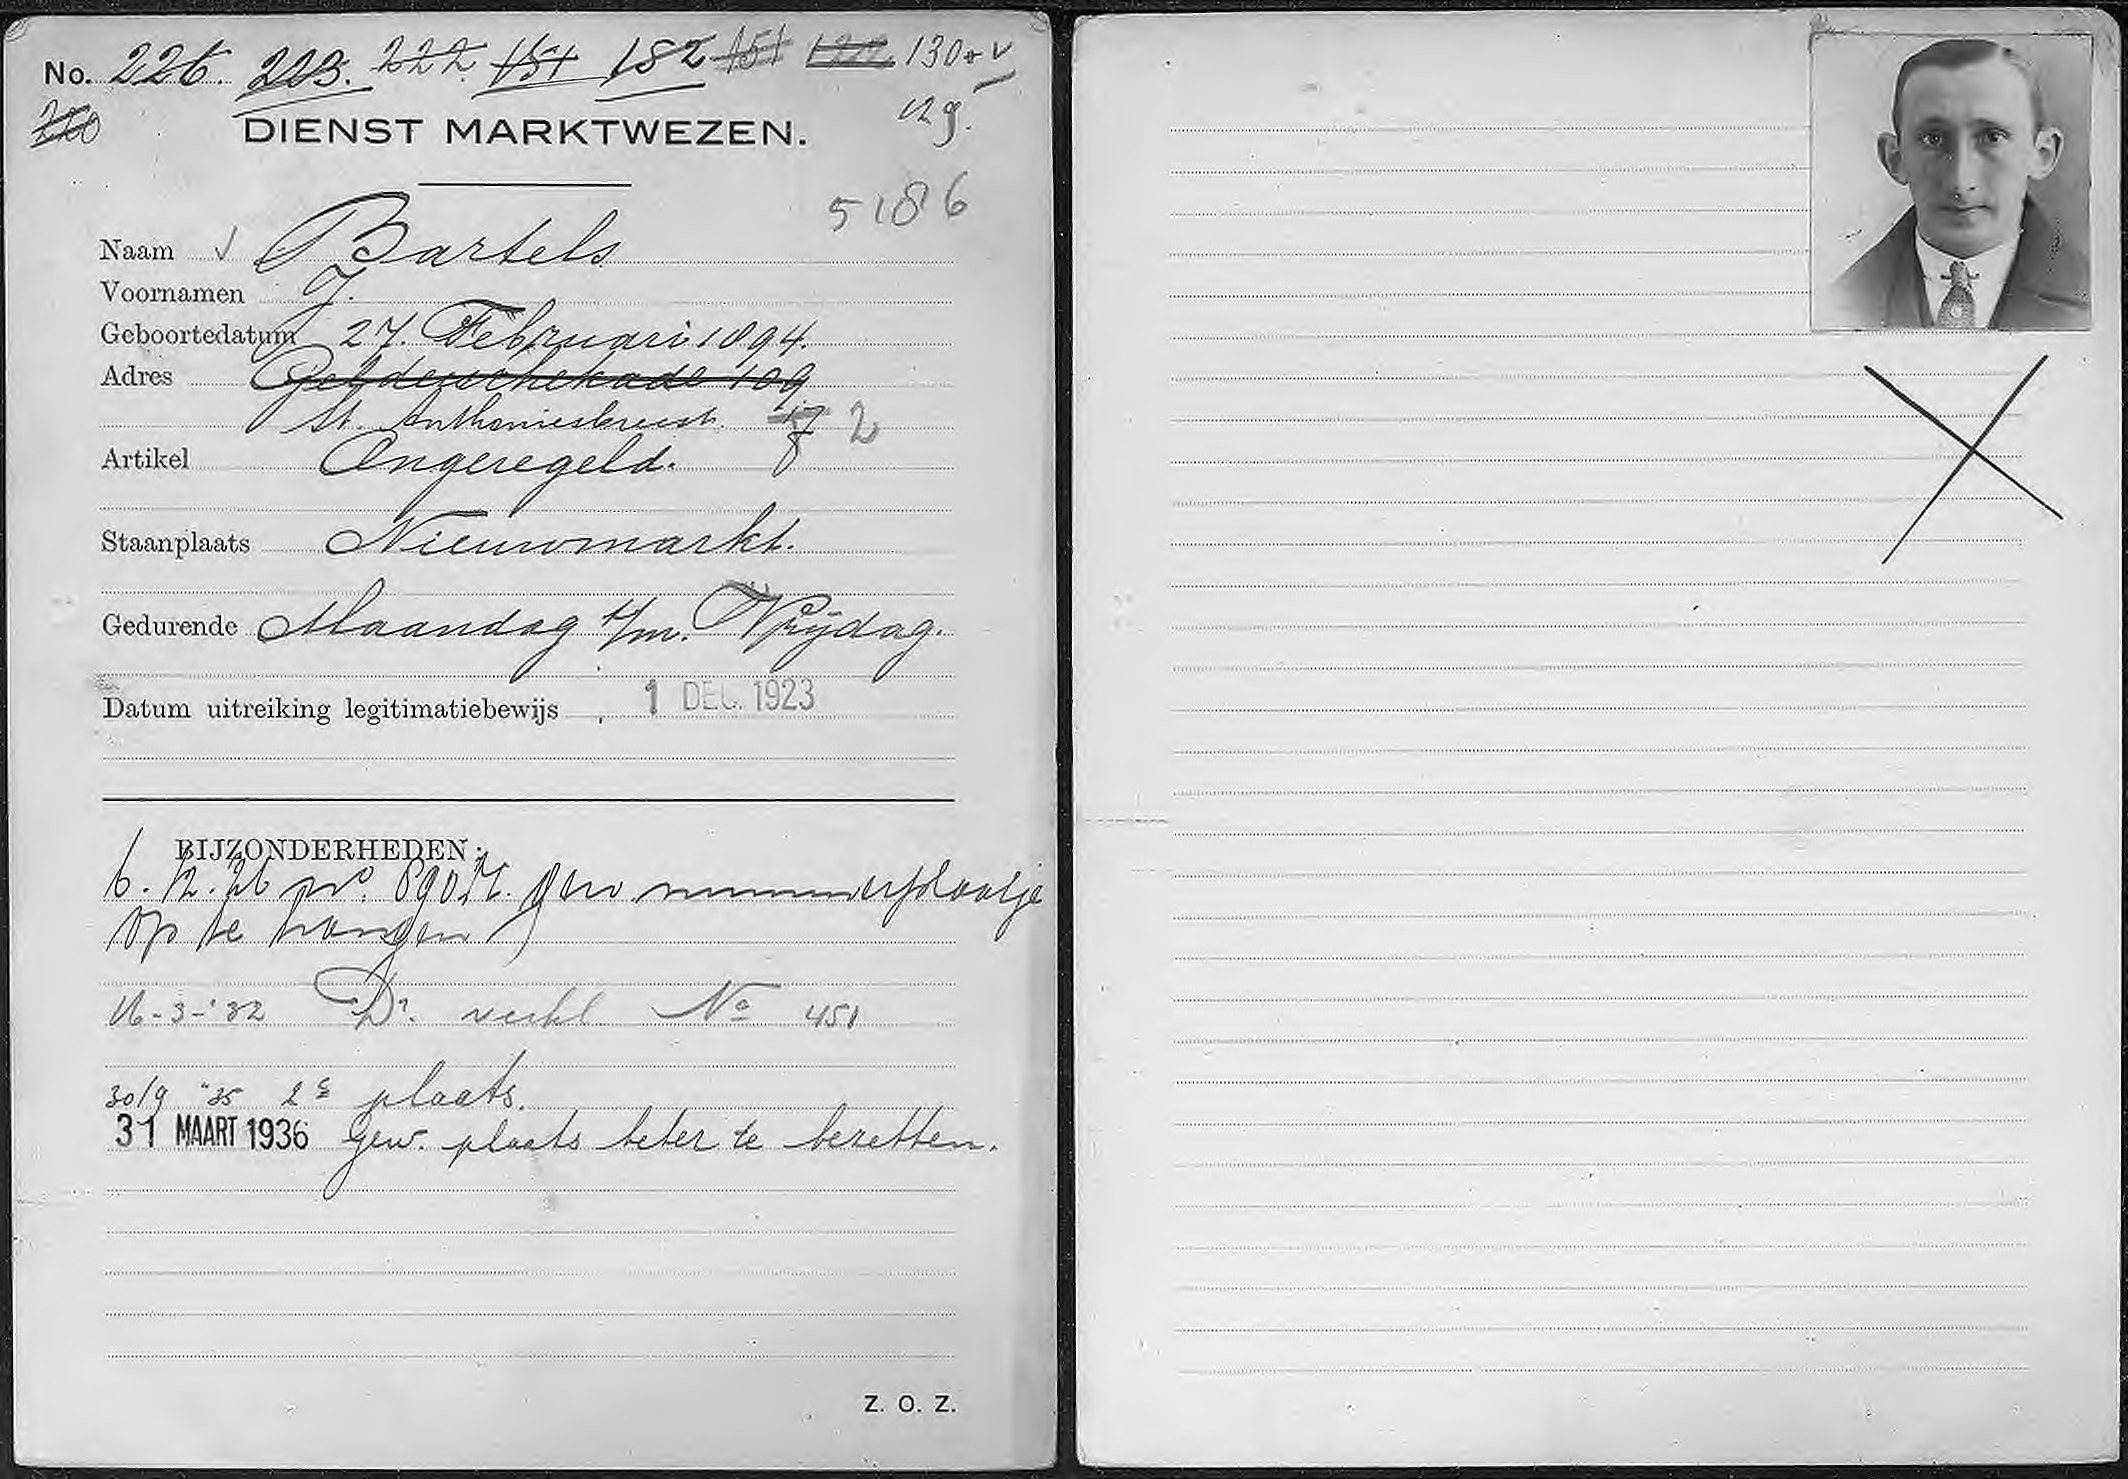 No. 226. 223. 222 151 182 151 130 + v
129.
DIENST MARKTWEZEN.
5186
Naam √ Bartels
Voornamen J.
Geboortedatum 27. Februari 1894.
Adres Gelderschekade 109
St. Anthoniesbreestr. 2
Artikel Ongeregeld.
Staanplaats Nieuwmarkt.
Gedurende Maandag t/m. Vrijdag.
Datum uitreiking legitimatiebewijs 1 DEC. 1923
BIJZONDERHEDEN:
6.12.26 nummerplaatje
op te hangen
16-3-'32 Dr. No 451
30/9 '35 2e plaats.
31 MAART 1936 gew. plaats beter te bezetten.
Z. O. Z.